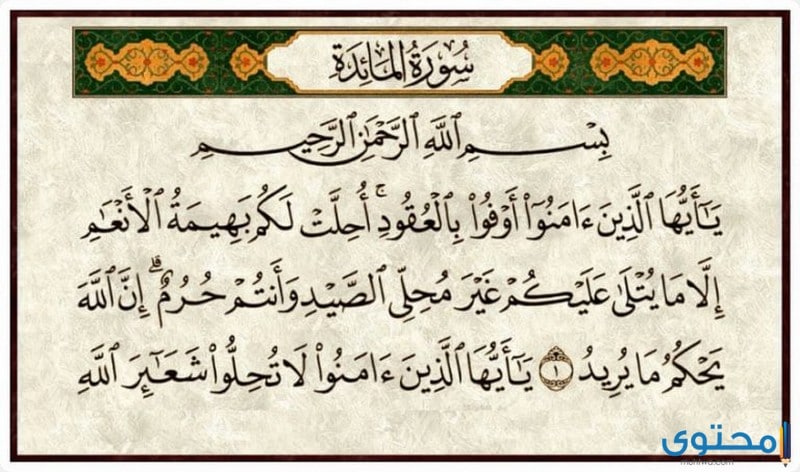 سُورَةُ المَائِدَةِ
بِسْمِ ٱللَّهِ ٱلرَّحْمَٰنِ ٱلرَّحِيمِ
يَٰٓأَيُّهَا ٱلَّذِينَ ءَامَنُوٓا۟ أَوْفُوا۟ بِٱلْعُقُودِ ۚ أُحِلَّتْ لَكُم بَهِيمَةُ ٱلْأَنْعَٰمِ
إِلَّا مَا يُتْلَىٰ عَلَيْكُمْ غَيْرَ مُحِلِّى ٱلصَّيْدِ وَأَنتُمْ حُرُمٌ ۗ إِنَّ ٱللَّهَ
يَحْكُمُ مَا يُرِيدُ ١ يَٰٓأَيُّهَا ٱلَّذِينَ ءَامَنُوا۟ لَا تُحِلُّوا۟ شَعَٰٓئِرَ ٱللَّهِ
محتوى